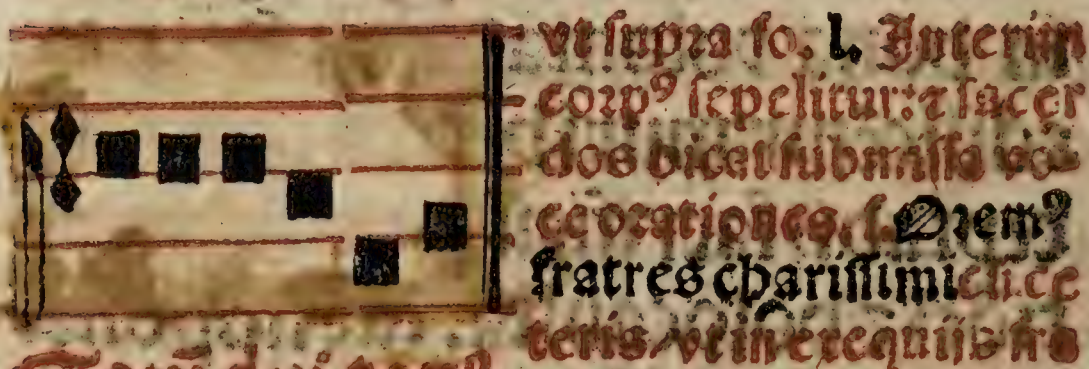 vt supra fo. l. Interim
corpꝰ sepelitur: ⁊ sacer
dos dicet submissa vo-
ce orationes. s. Oremꝰ
fratres charissimi cū ce
teris, vt in exequijs fra